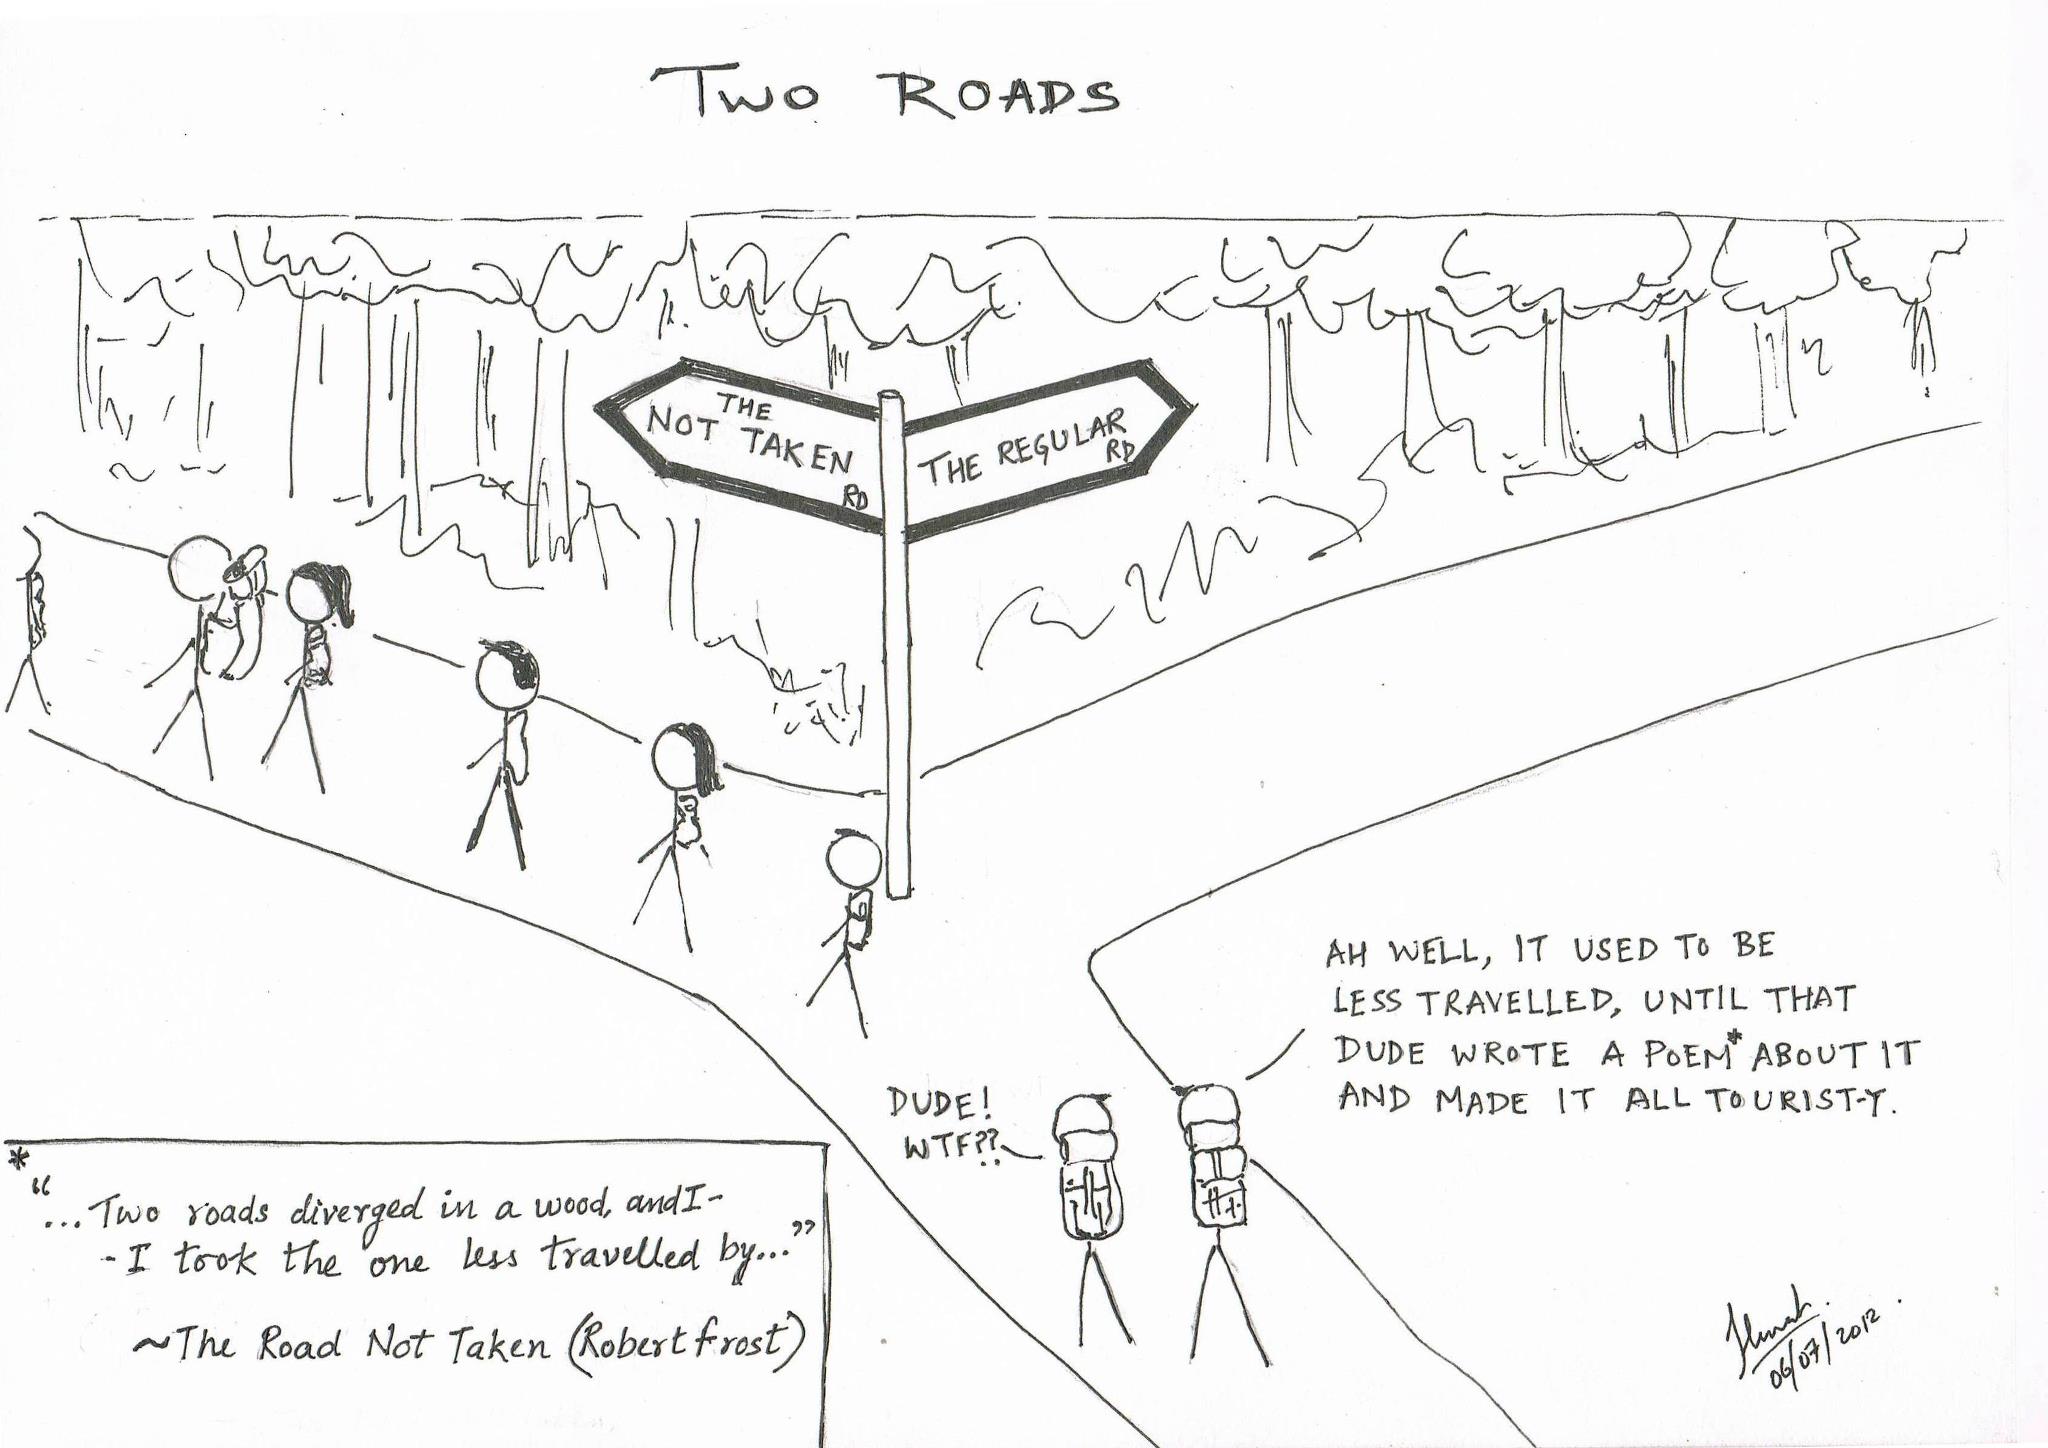 TWO ROADS
THE
NOT TAKEN
RD
THE REGULAR
RD
AH WELL, IT USED TO BE
LESS TRAVELLED, UNTIL THAT
DUDE WROTE A POEM* ABOUT IT
AND MADE IT ALL TOURIST-Y.
DUDE!
WTF??
*
"...Two roads diverged in a wood, and I-
-I took the one less travelled by..."
~The Road Not Taken (Robert frost)
06/07/2012